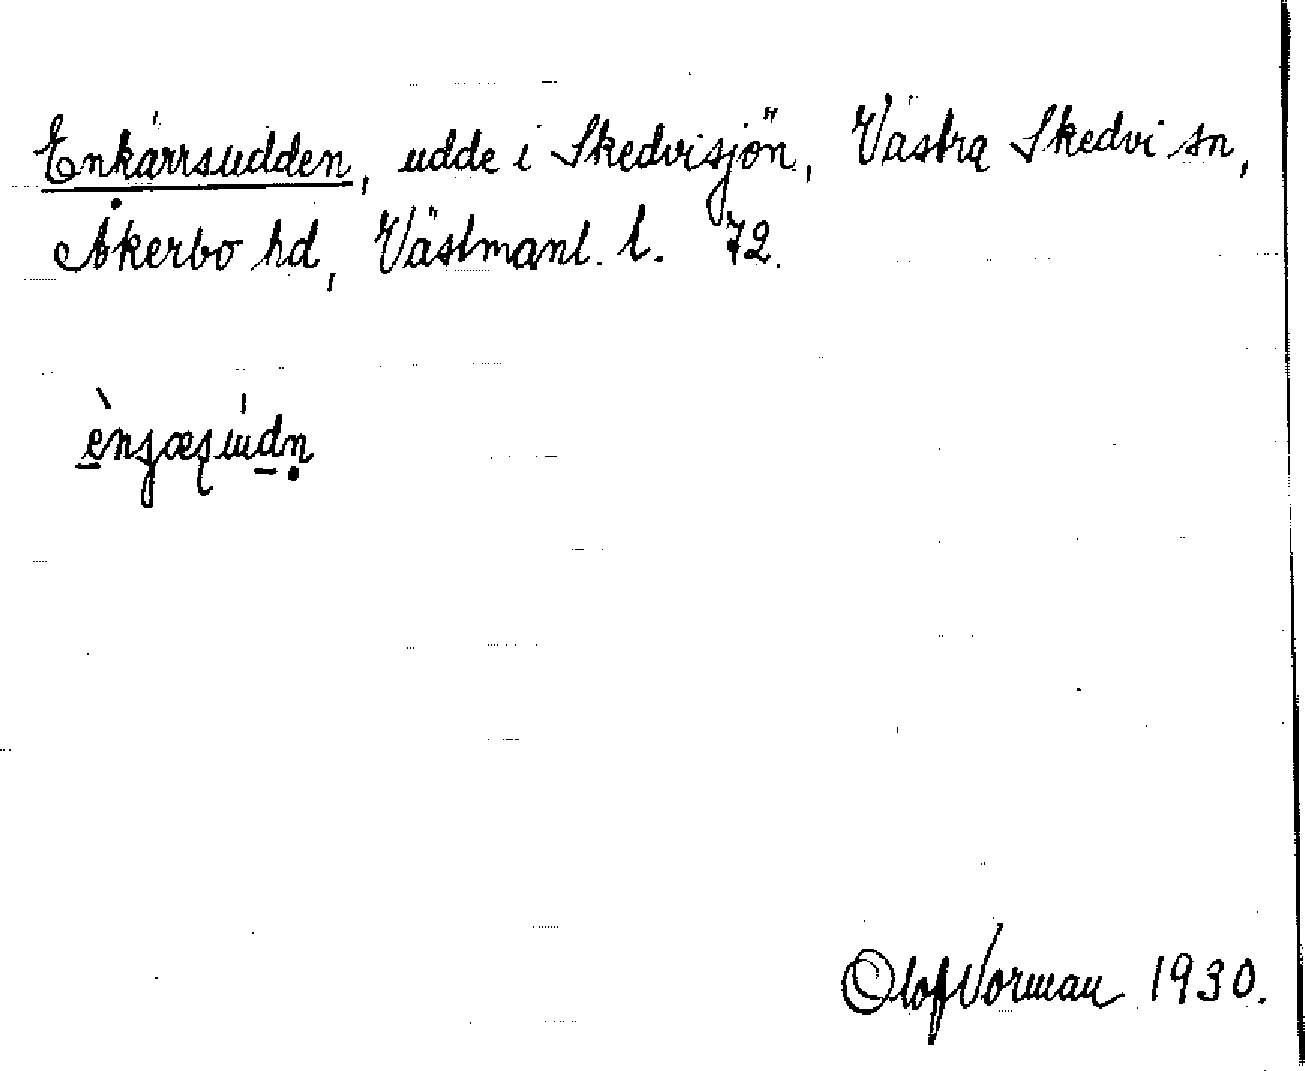 Enkärrsudden, udde i Skedvisjön, Västra Skedvi sn,
Åkerbo hd, Västmanl. l. 72.
Olof Norman 1930.